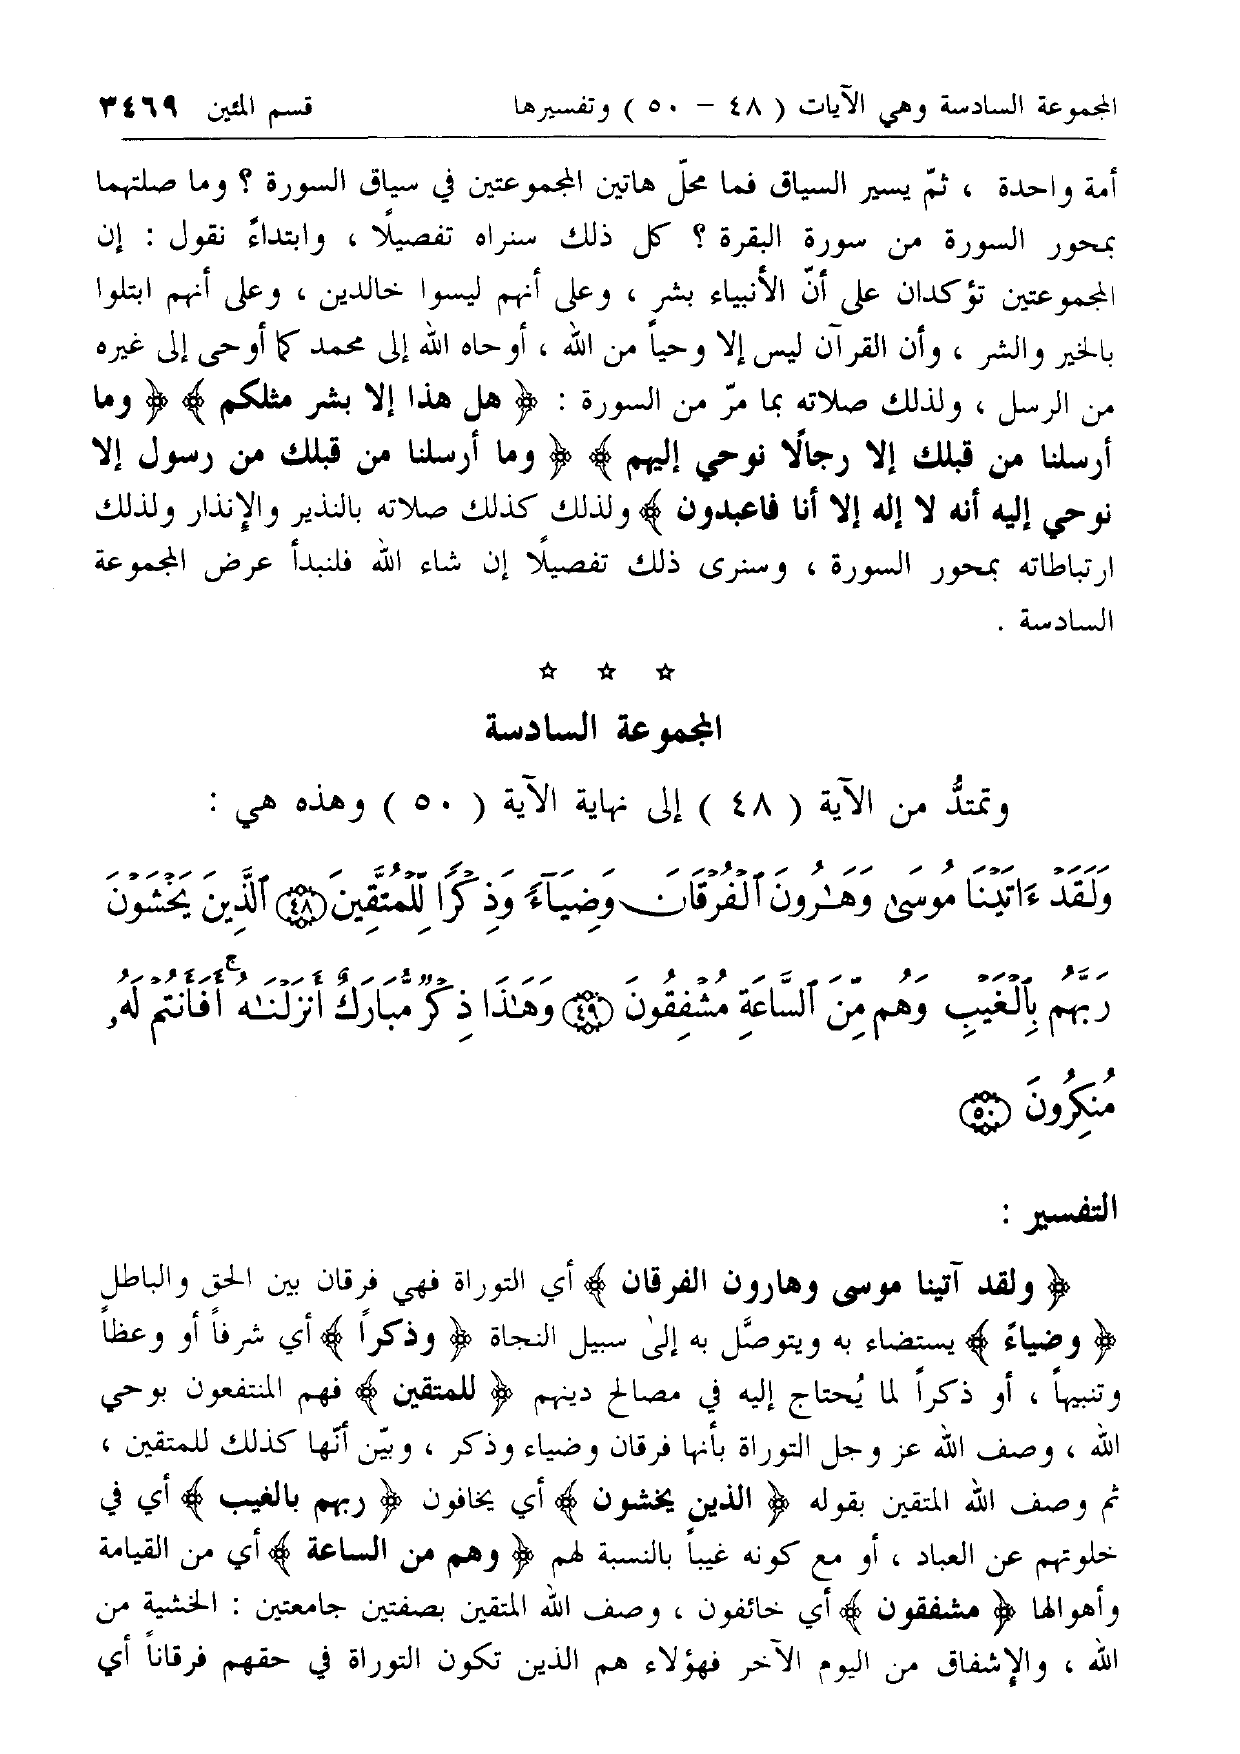 المجموعة السادسة وهي الآيات ( ٤٨ - ٥٠ ) وتفسيرها قسم المئين ٣٤٦٩
أمة واحدة ، ثمّ يسير السياق فما محلّ هاتين المجموعتين في سياق السورة ؟ وما صلتهما
بمحور السورة من سورة البقرة ؟ كل ذلك سنراه تفصيلًا ، وابتداءً نقول : إن
المجموعتين تؤكدان على أنّ الأنبياء بشر ، وعلى أنهم ليسوا خالدين ، وعلى أنهم ابتلوا
بالخير والشر ، وأن القرآن ليس إلا وحياً من الله ، أوحاه الله إلى محمد كما أوحى إلى غيره
من الرسل ، ولذلك صلاته بما مرّ من السورة : ﴿ هل هذا إلا بشر مثلكم ﴾ ﴿ وما
أرسلنا من قبلك إلا رجالًا نوحي إليهم ﴾ ﴿ وما أرسلنا من قبلك من رسول إلا
نوحي إليه أنه لا إله إلا أنا فاعبدون ﴾ ولذلك كذلك صلاته بالنذير والإنذار ولذلك
ارتباطاته بمحور السورة ، وسنرى ذلك تفصيلًا إن شاء الله فلنبدأ عرض المجموعة
السادسة .
☆ ☆ ☆
المجموعة السادسة
وتمتدُّ من الآية ( ٤٨ ) إلى نهاية الآية ( ٥٠ ) وهذه هي :
وَلَقَدْ ءَاتَيْنَا مُوسَىٰ وَهَـٰرُونَ ٱلْفُرْقَانَ وَضِيَآءً وَذِكْرًا لِّلْمُتَّقِينَ ﴿٤٨﴾ ٱلَّذِينَ يَخْشَوْنَ
رَبَّهُم بِٱلْغَيْبِ وَهُم مِّنَ ٱلسَّاعَةِ مُشْفِقُونَ ﴿٤٩﴾ وَهَـٰذَا ذِكْرٌ مُّبَارَكٌ أَنزَلْنَـٰهُ ۚ أَفَأَنتُمْ لَهُۥ
مُنكِرُونَ ﴿٥٠﴾
التفسير :
﴿ ولقد آتينا موسى وهارون الفرقان ﴾ أي التوراة فهي فرقان بين الحق والباطل
﴿ وضياءً ﴾ يستضاء به ويتوصَّل به إلىٰ سبيل النجاة ﴿ وذكراً ﴾ أي شرفاً أو وعظاً
وتنبيهاً ، أو ذكراً لما يُحتاج إليه في مصالح دينهم ﴿ للمتقين ﴾ فهم المنتفعون بوحي
الله ، وصف الله عز وجل التوراة بأنها فرقان وضياء وذكر ، وبيّن أنّها كذلك للمتقين ،
ثم وصف الله المتقين بقوله ﴿ الذين يخشون ﴾ أي يخافون ﴿ ربهم بالغيب ﴾ أي في
خلوتهم عن العباد ، أو مع كونه غيباً بالنسبة لهم ﴿ وهم من الساعة ﴾ أي من القيامة
وأهوالها ﴿ مشفقون ﴾ أي خائفون ، وصف الله المتقين بصفتين جامعتين : الخشية من
الله ، والإشفاق من اليوم الآخر فهؤلاء هم الذين تكون التوراة في حقهم فرقاناً أي